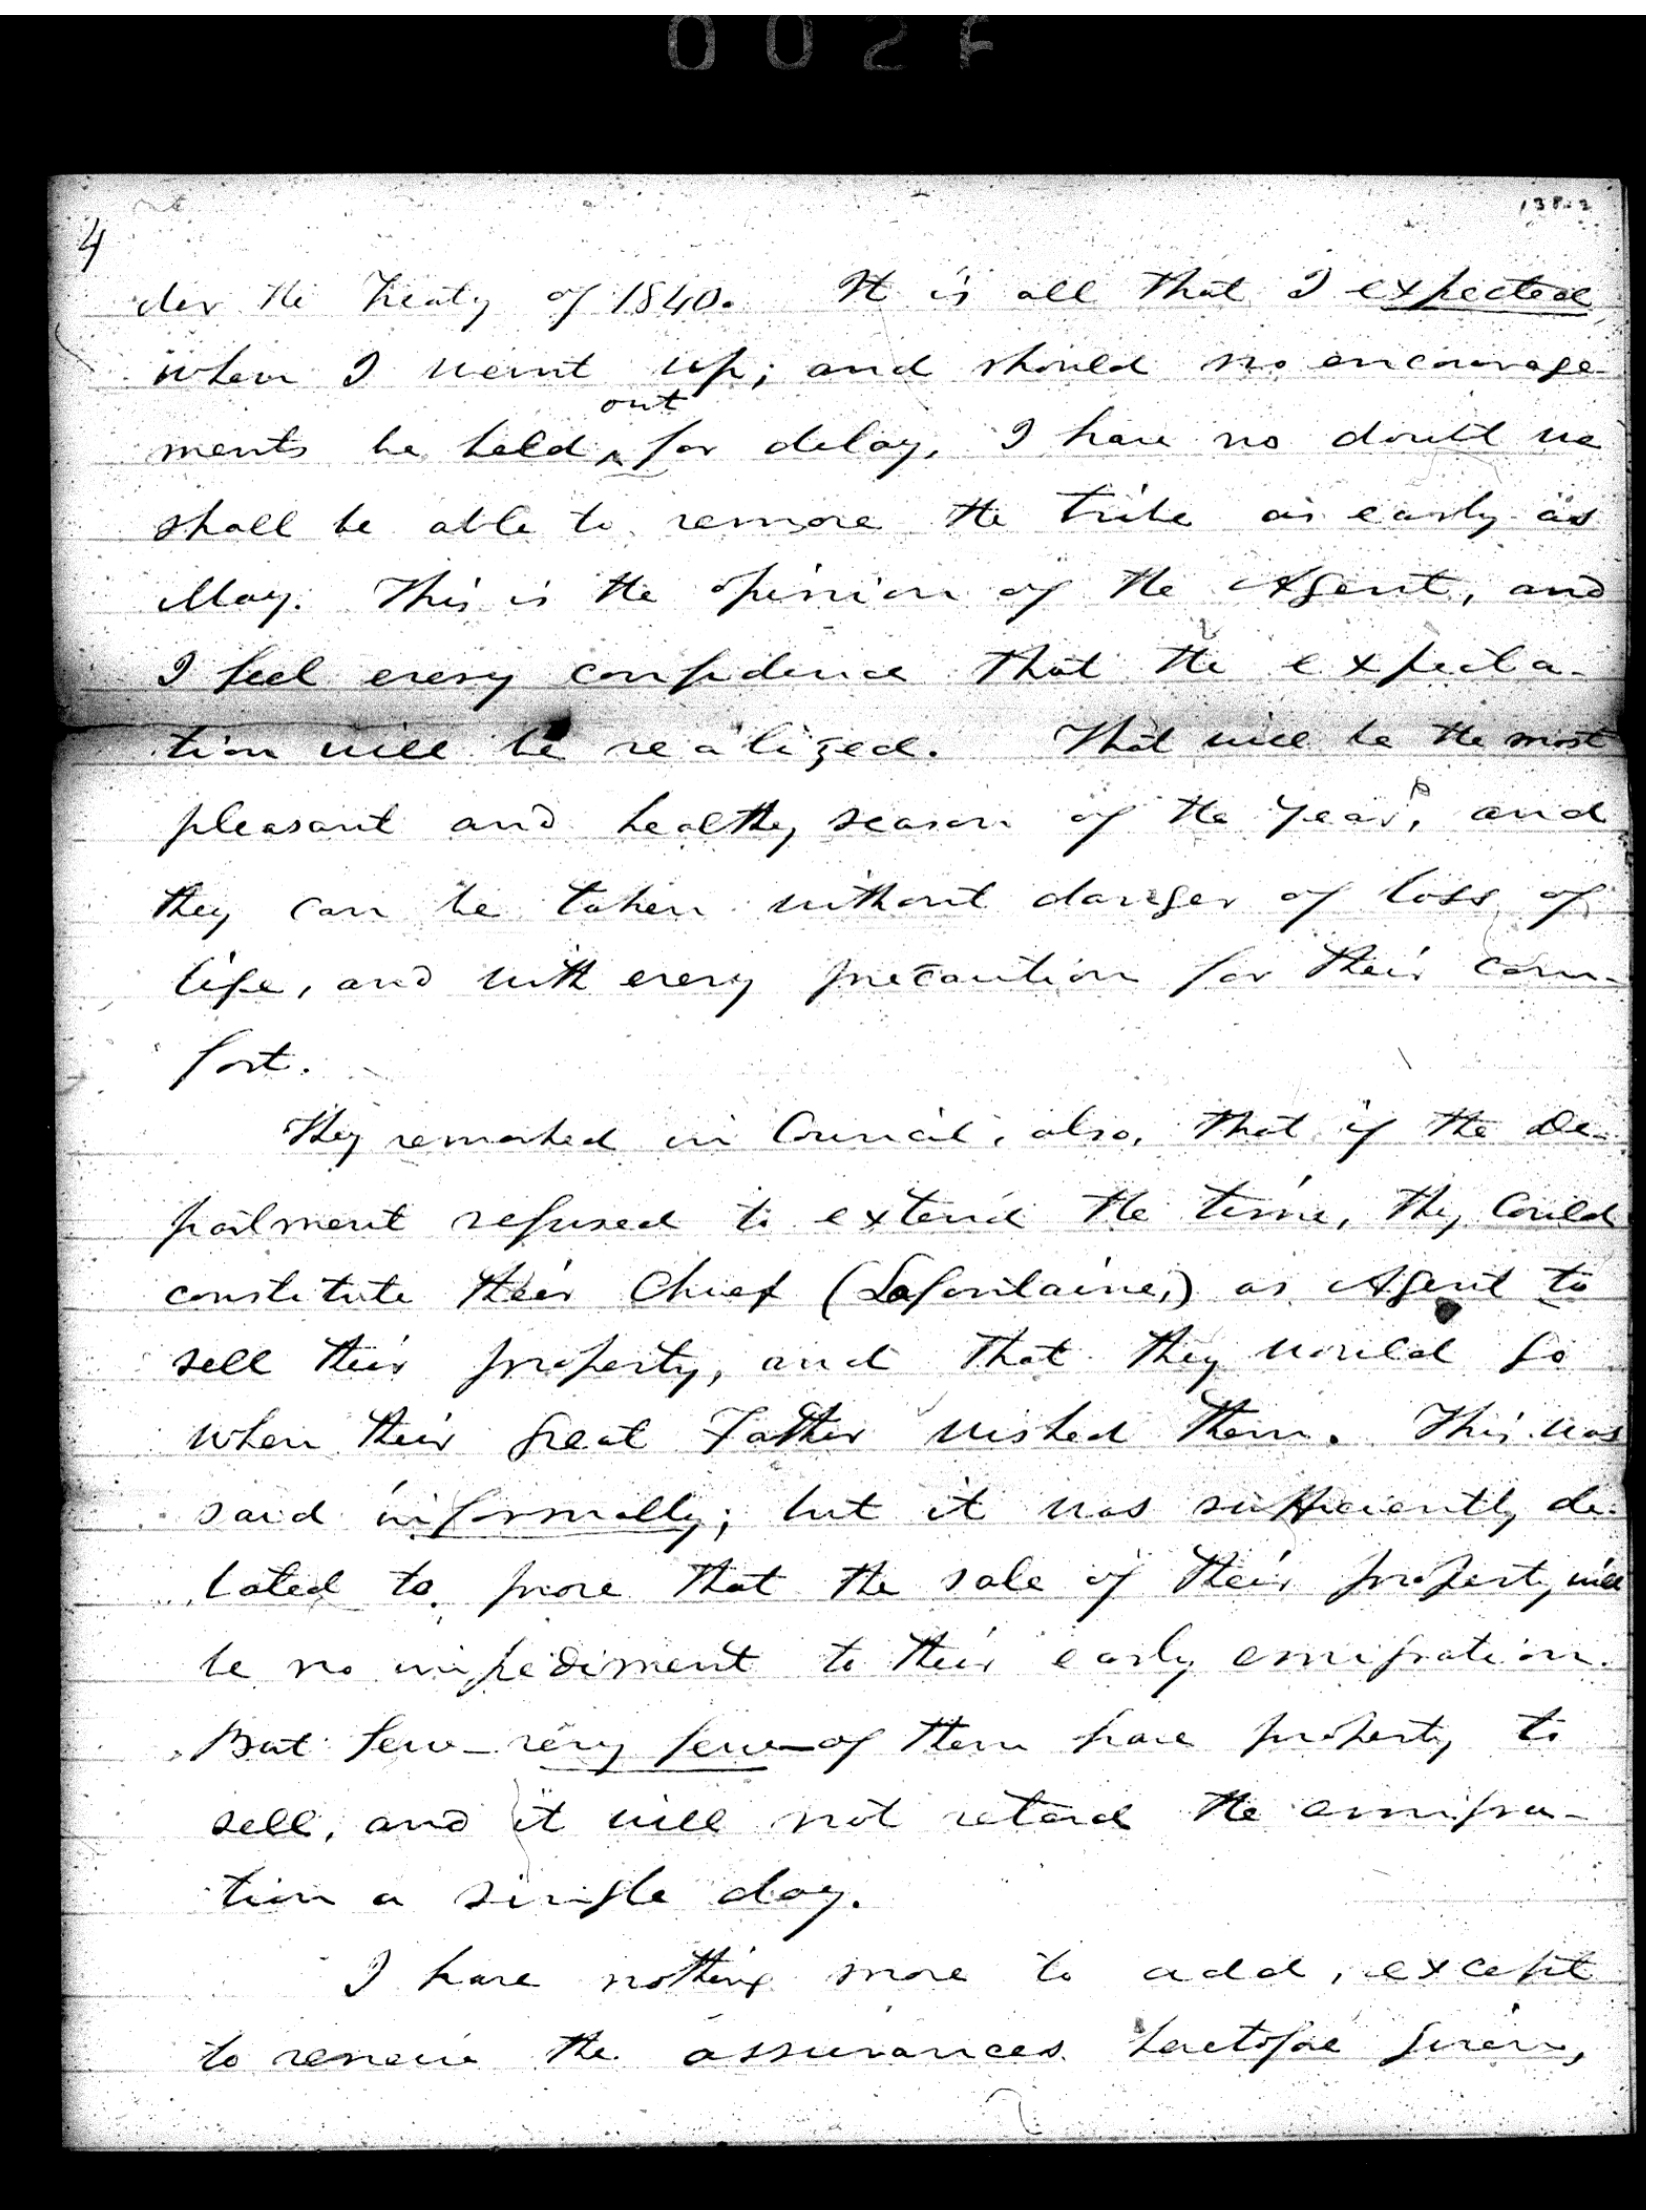 002
4
der the Treaty of 1840. It is all that I expected
when I went up; and should no encourage-
out
ments be held ^ for delay, I have no doubt we
shall be able to remove the tribe as early as
May. This is the opinion of the Agent, and
I feel every confidence that the expecta-
tion will be realized. That will be the most
pleasant and healthy season of the year, and
they can be taken without danger of loss of
life, and with every precaution for their com-
fort.
They remarked in Council, also, that if the De-
partment refused to extend the time, they could
constitute their Chief (Lafontaine,) as Agent to
sell their property, and that they would go
when their great Father wished them. This was
said informally; but it was sufficiently de-
bated to prove that the sale of their property will
be no impediment to their early emigration.
But few - very few - of them have property to
sell, and it will not retard the emigra-
tion a single day.
I have nothing more to add, except
to renew the assurances heretofore given,